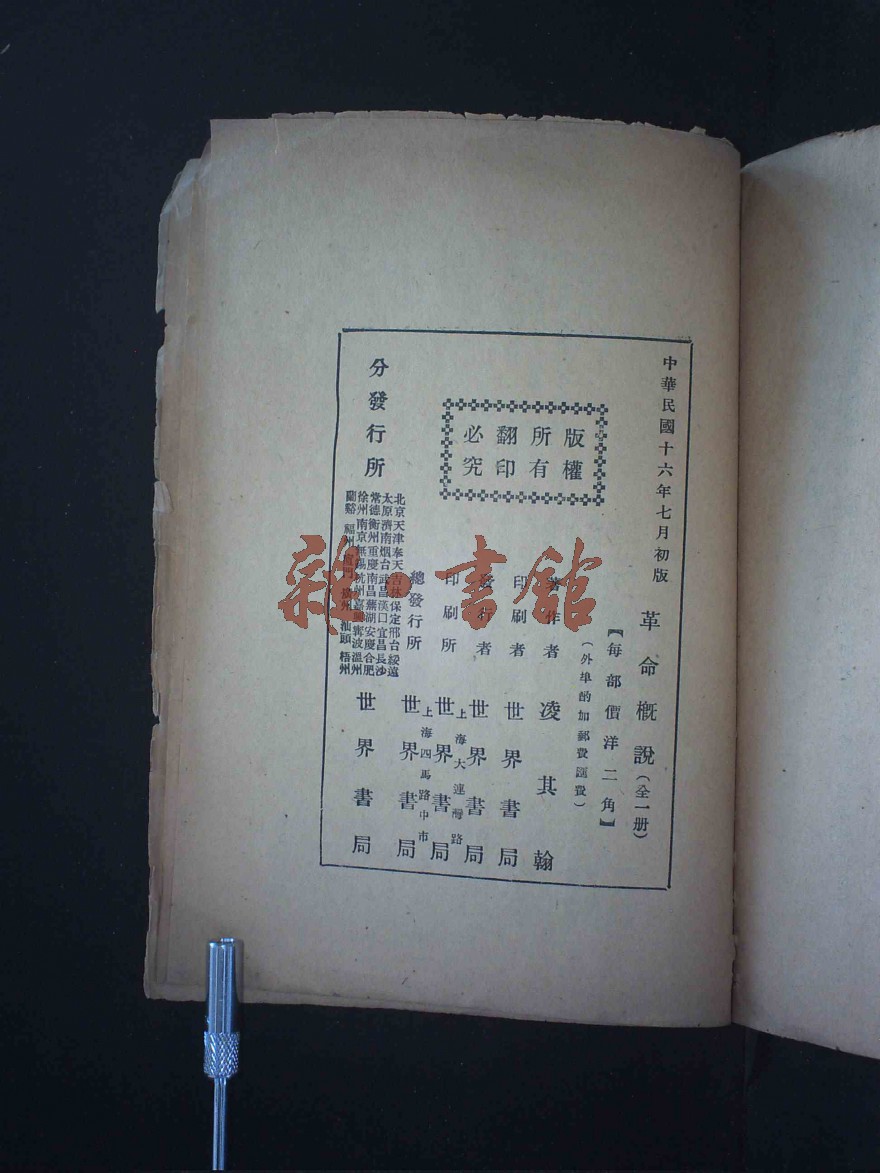 中華民國十六年七月初版
革命概說(全一册)
【每部價洋二角】
(外埠酌加郵費匯費)
版權
所有
翻印
必究
著作者 凌其翰
印刷者 世界書局
發行者 世界書局
上海大連灣路
印刷所 世界書局
上海四馬路中市
總發行所 世界書局
分發行所
北京天津奉天吉林保定邢台綏遠
太原濟南烟台武昌漢口宜昌長沙
常德衡州重慶南昌蕪湖安慶合肥
徐州南京無錫杭州嘉興寧波溫州
蘭谿 福州 廈門 廣州 汕頭 梧州
世界書局
雜書館